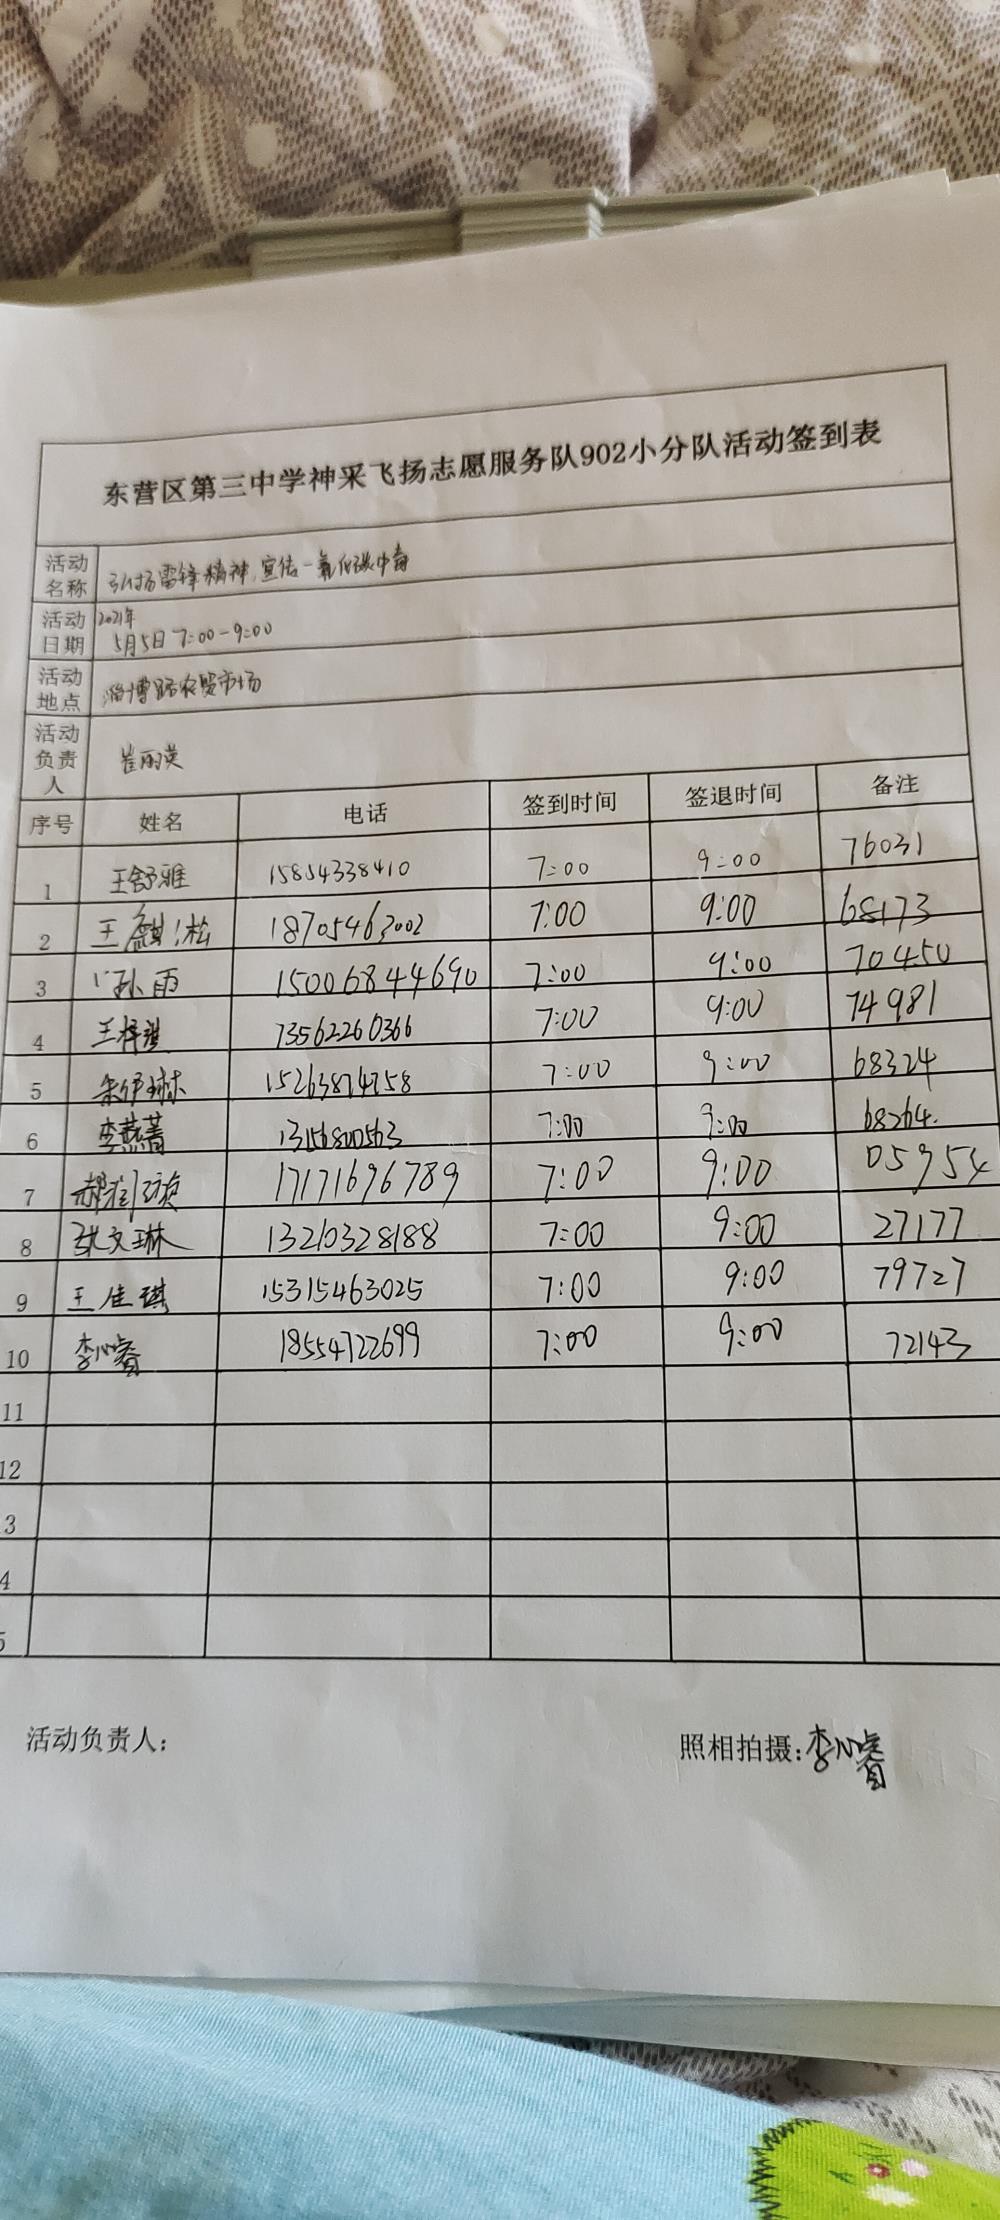 东营区第三中学神采飞扬志愿服务队902小分队活动签到表
活动名称 弘扬雷锋精神,宣传一氧化碳中毒
活动日期 2021年 5月5日 7:00-9:00
活动地点 淄博路农贸市场
活动负责人 崔丽英
序号 姓名 电话 签到时间 签退时间 备注
1 王舒雅 15854338410 7:00 9:00 76031
2 王麒淞 18705463002 7:00 9:00 68173
3 孙雨 15006844690 7:00 9:00 70450
4 王梓淇 13562260366 7:00 9:00 74981
5 朱伊琳 15263874758 7:00 9:00 68324
6 李燕菁 13156800563 7:00 9:00 68264.
7 17171696789 7:00 9:00 05954
8 张文琳 13210328188 7:00 9:00 27177
9 王佳琪 15315463025 7:00 9:00 79727
10 李心睿 18554722699 7:00 9:00 72143
11
12
3
4
5
活动负责人: 照相拍摄:李心睿